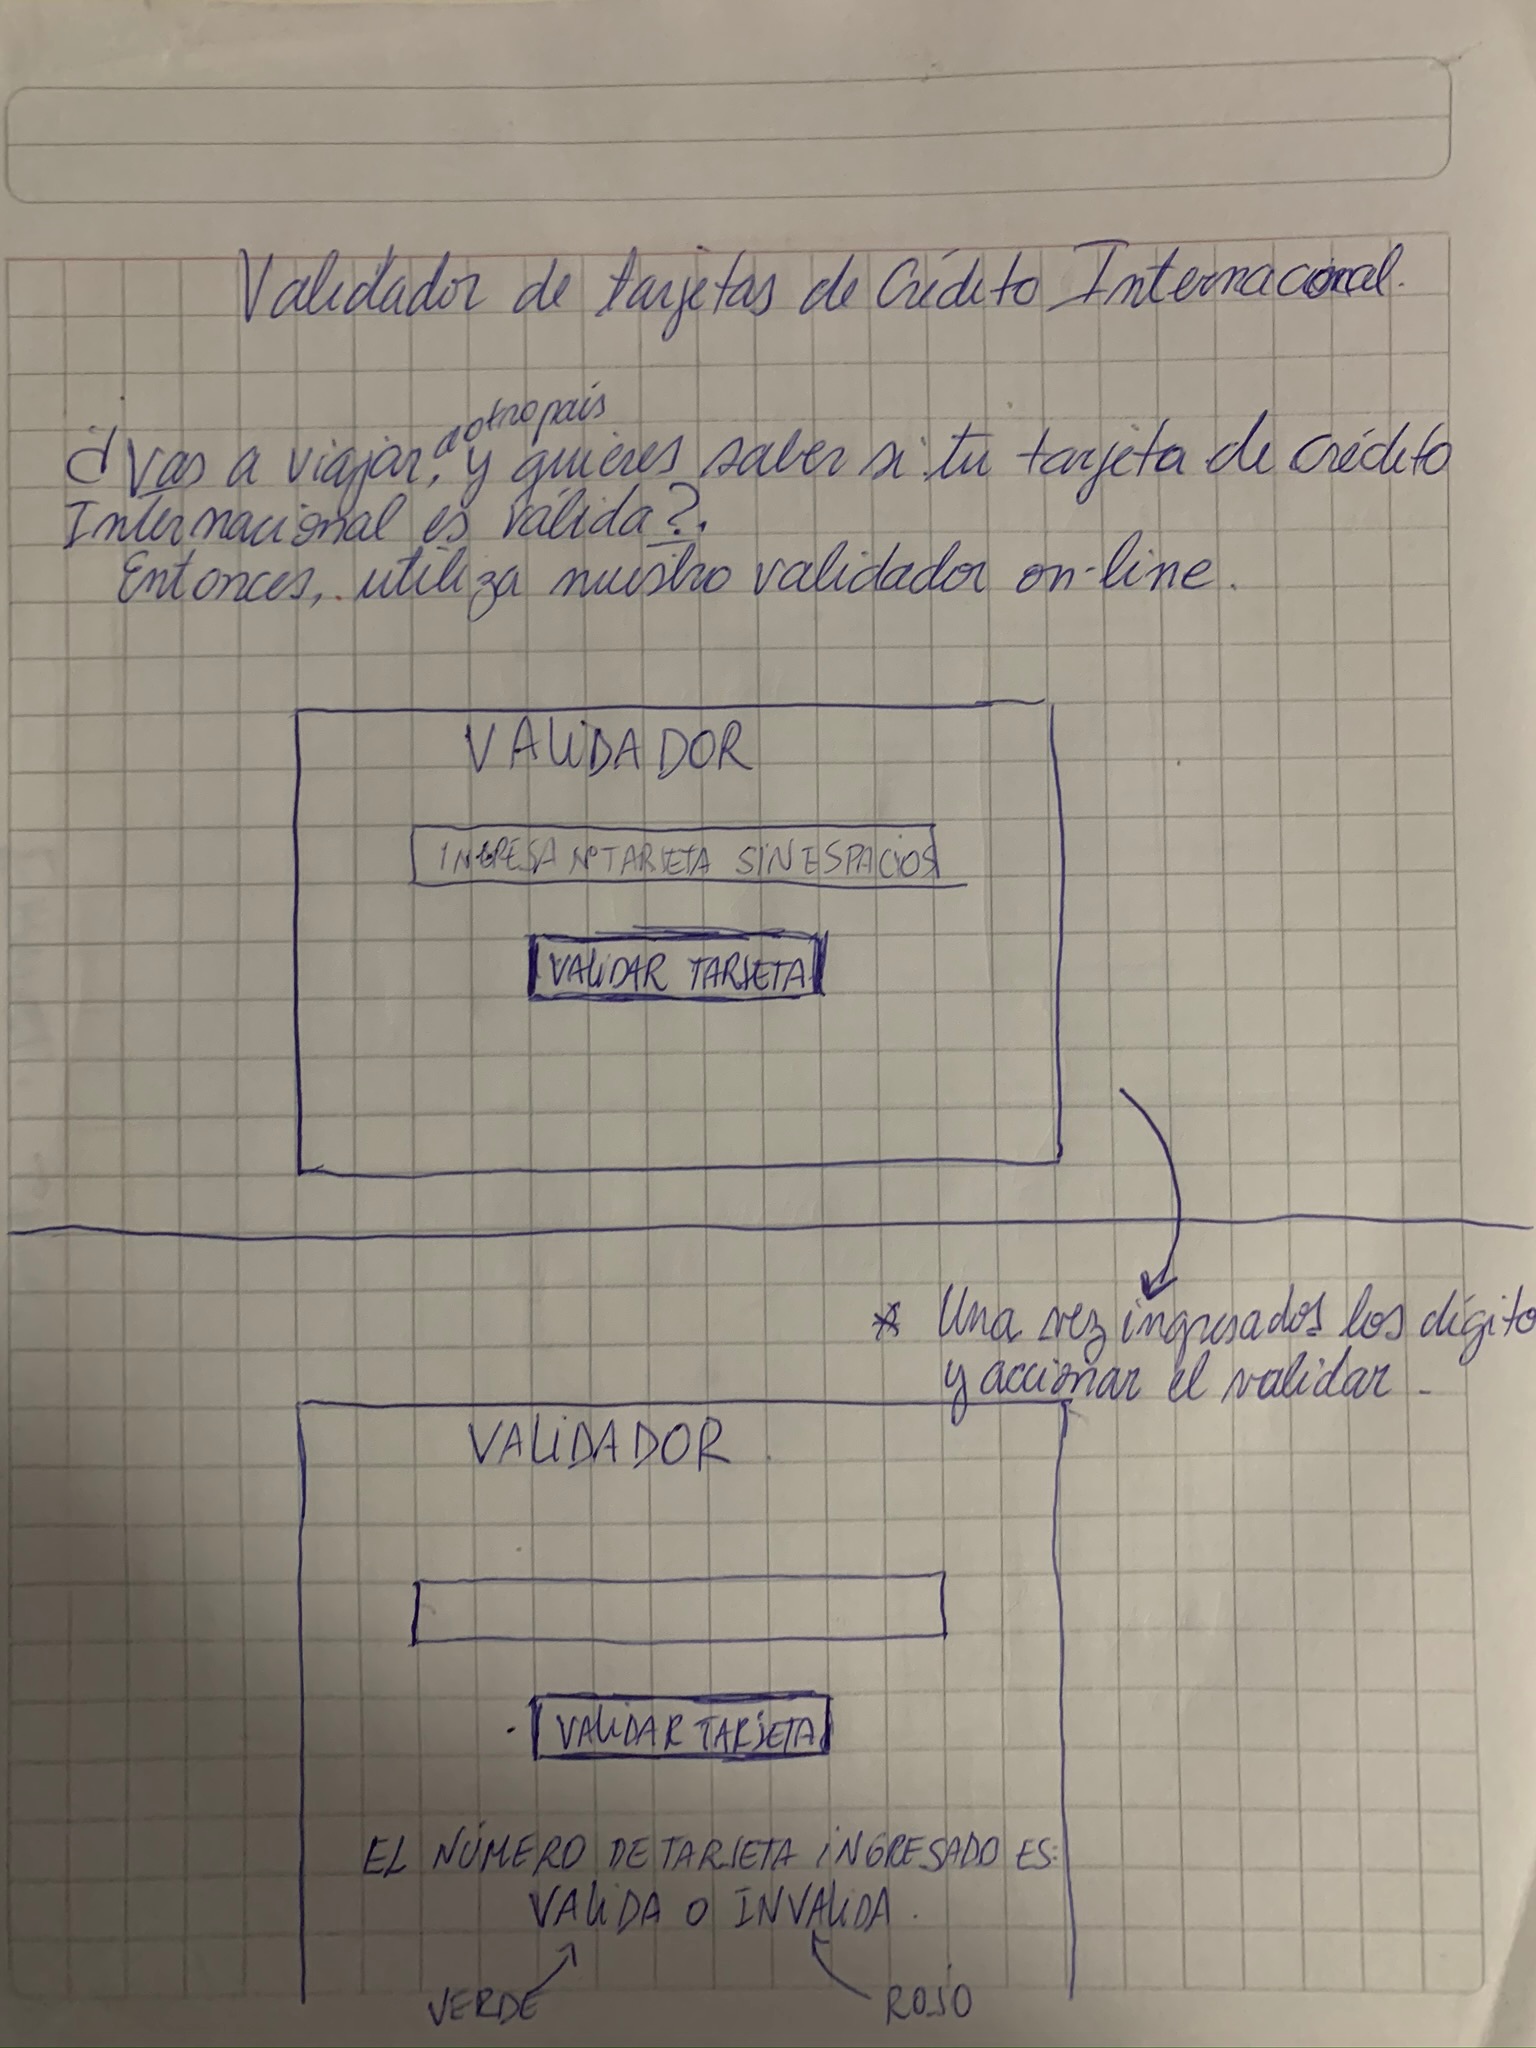 Validador de tarjetas de Crédito Internacional.
a otro país
¿Vas a viajar, y quieres saber si tu tarjeta de crédito
Internacional es válida?.
Entonces, utiliza nuestro validador on-line.
VALIDADOR
INGRESA Nº TARJETA SIN ESPACIOS
VALIDAR TARJETA
* Una vez ingresados los dígito
y accionar el validar.
VALIDADOR
VALIDAR TARJETA
EL NÚMERO DE TARJETA INGRESADO ES:
VALIDA O INVALIDA.
VERDE ROJO